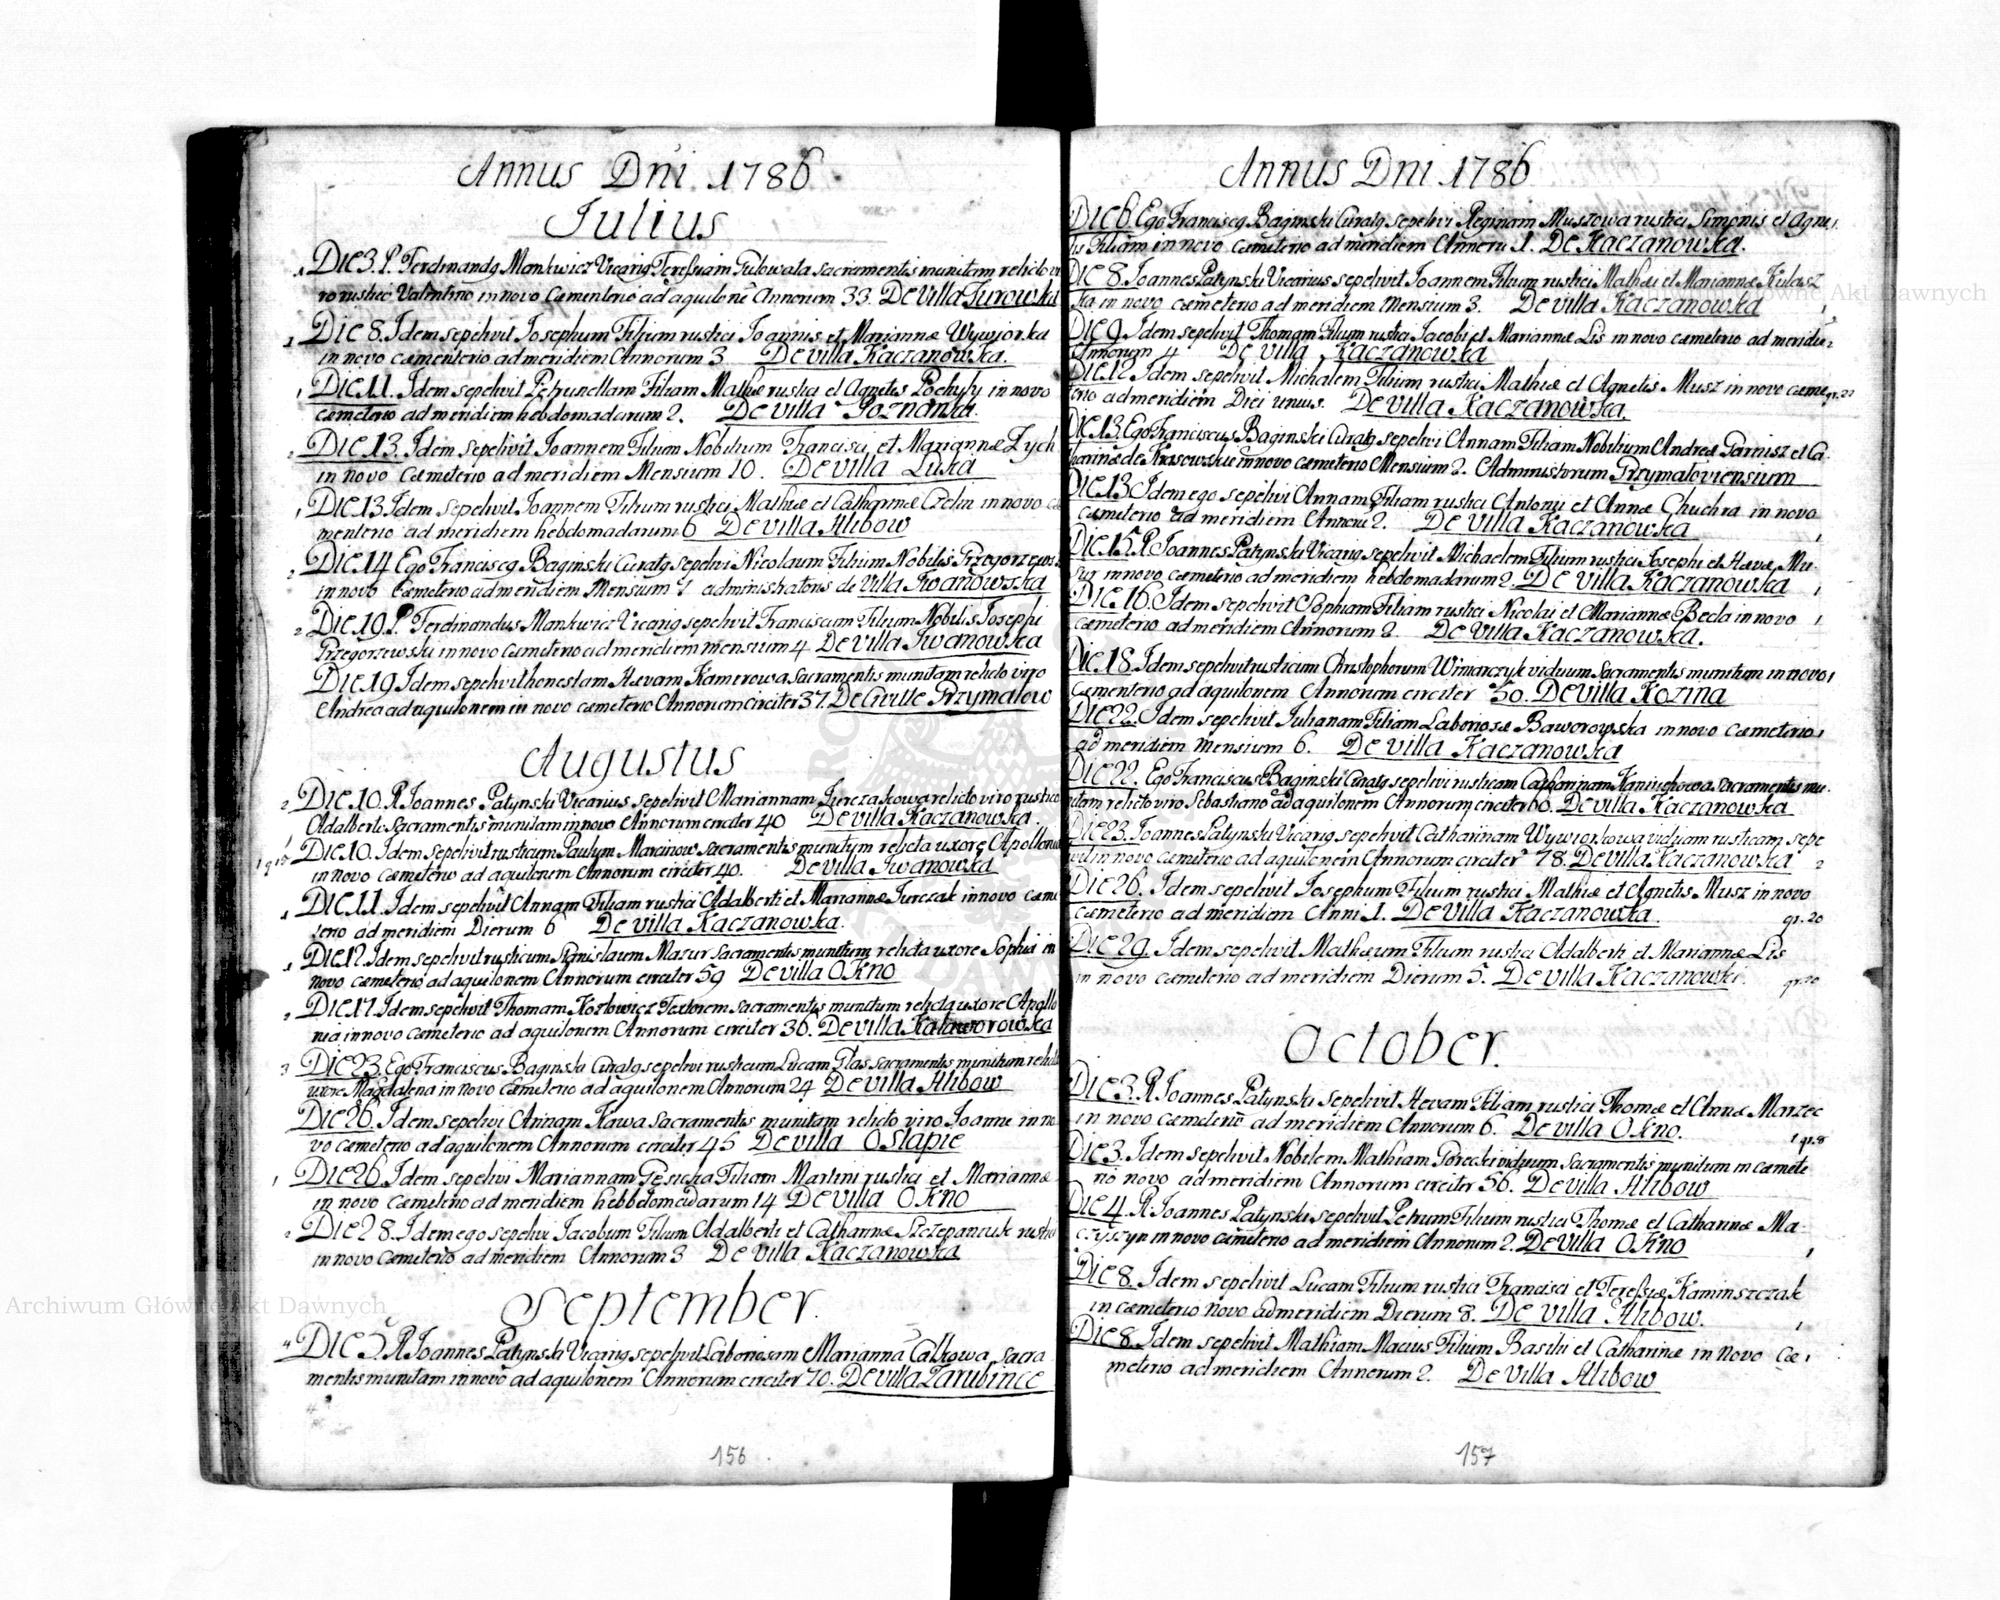 Annus Dni 1786
Julius
Die 3. P. Ferdinandg Mankwicz Vicarig Teressiam Gulowata sacramentis munitam relicto vi
ro rustico Valentino in novo Cæmenterio ad aquilonē Annorum 33. De Villa Turowka
Die 8. Idem sepelivit Josephum Filium rustici Joannis et Mariannæ Wywjorka
in novo cæmenterio ad meridiem Annorum 3 De villa Kaczanowka.
Die 11. Idem sepelivit Petrunellam Filiam Mathiæ rustici et Agnetis Pochyły in novo
cæmeterio ad meridiem hebdomadarum 2. De villa Poznanka.
Die 13. Idem sepelivit Joannem Filium Nobilium Francisci et Mariannæ Zych
in novo Cæmeterio ad meridiem Mensium 10. De villa Luka
Die 13 Idem sepelivit Joannem Filium rustici Mathiæ et Catharinæ in novo cæ
menterio ad meridiem hebdomadarum 6 De villa Hlibow
Die 14 Ego Franciscg Baginski Curatg sepelivi Nicolaum Filium Nobilis
in novo Cæmeterio ad meridiem Mensium administratoris de Villa Iwanowska
Die 19. P. Ferdinandus Mankwicz Vicarig sepelivit Franciscum Filium Nobilis Josephi
Przegorzewski in novo Cæmeterio ad meridiem mensium 4 De villa Iwanowka
Die 19 Idem sepelivit honestam Hævam Kamerowa sacramentis munitam relicto viro
Andrea ad aquilonem in novo cæmeterio Annorum circiter 37. De Civille Grzymałow
Augustus
2 Die 10. R Joannes Patynski Vicarius sepelivit Mariannam Jurczakowa relicto viro rustico
Adalberto Sacramentis munitam in novo Annorum circiter 40 De villa Kaczanowka.
Die 10. Idem sepelivit rusticum Paulum Marcinow sacramentis munitum relicta uxore Apollonia
in novo Cæmeterio ad aquilonem Annorum circiter 40. De villa Iwanowka
1 Die 11. Idem sepelivit Annam Filiam rustici Adalberti et Mariannæ Jurczak in novo cæme
terio ad meridiem Dierum 6 De villa Kaczanowka.
Die 12 Idem sepelivit rusticum Stanislaum Mazur Sacramentis munitum relicta uxore Sophia in
novo cæmeterio ad aquilonem Annorum circiter 59 De villa Okno
Die 17 Idem sepelivit Thomam Kozłowicz Textorem sacramentis munitum relicta uxore Apollo
nia in novo cæmeterio ad aquilonem Annorum circiter 36. De villa
3 Die 23. Ego Franciscus Baginski Curatg sepelivi rusticum Lucam Glas Sacramentis munitum relicta
uxore Magdalena in novo Cæmeterio ad aquilonem Annorum 24 De villa Hlibow
Die 26. Idem sepelivi Annam Kawa Sacramentis munitam relicto viro Joanne in no
vo cæmeterio ad aquilonem Annorum circiter 45 De villa Ostapie
1 Die 26. Idem sepelivi Mariannam Gesicka Filiam Martini rustici et Mariannæ
in novo Cæmeterio ad meridiem hebbdomadarum 14 De villa Okno
2 Die 28. Idem ego sepelivi Jacobum Filium Adalberti et Catharinæ Szczepaniuk rustici
in novo Cæmeterio ad meridiem Annorum 3 De villa Kaczanowka
September.
4 Die 5. R Joannes Patynski Vicarig sepelivit Laboriosam Marianna Całkowa sacra
mentis munitam in novo ad aquilonem Annorum circiter 70. De villa Zarubince
156
Annus Dni 1786
Die 6. Ego Franciscg Baginski Curatg sepelivi Reginam Muszowa rustici Simonis et Agne
tis Filiam in novo cæmeterio ad meridiem Annoru 1. De Kaczanowka.
Die 8. Joannes Patynski Vicarius sepelivit Joannem Filium rustici Mathæi et Mariannæ Kulasz
ka in novo cæmeterio ad meridiem Mensium 3. De villa Kaczanowka
Die 9. Idem sepelivit Thomam Filium rustici Jacobi et Mariannæ Lis in novo cæmeterio ad meridie
Annorum 4 De villa Kaczanowka
Die 12 Idem sepelivit Michalem Filium rustici Mathiæ et Agnetis Musz in novo cæme gr. 20
terio ad meridiem Diei unius. De villa Kaczanowka.
Die 13. Ego Franciscus Baginski Curatg sepelivi Annam Filiam Nobilium Andreæ Garnisz et Ca-
tharinæ de Krasowskie in novo cæmeterio Mensium 2. Administrorum Grzymałoviensium
Die 13. Idem ego sepelivi Annam Filiam rustici Antonii et Annæ Chuchra in novo
cæmeterio ad meridiem Annoru 2. De villa Kaczanowka
Die 15. R. Joannes Patynski Vicarig sepelivit Michaelem Filium rustici Josephi et Hævæ Mu-
in novo cæmeterio ad meridiem hebdomadarum 2. De villa Kaczanowka
Die 16. Idem sepelivit Sophiam Filiam rustici Nicolai et Mariannæ Becla in novo
cæmeterio ad meridiem Annorum 2. De villa Kaczanowka.
Die 18. Idem sepelivit rusticum Christophorum Winiarczyk viduum Sacramentis munitum in novo
cæmenterio ad aquilonem Annorum circiter 50. De villa Kozina
Die 22. Idem sepelivit Julianam Filiam Laboriosæ Baworowska in novo Cæmeterio
ad meridiem Mensium 6. De villa Kaczanowka
Die 22. Ego Franciscus Baginski Curatg sepelivi rusticam Catharinam sacramentis mu-
nitam relicto viro Sebastiano ad aquilonem Annorum circiter 60. De villa Kaczanowka
Die 23. Joannes Patynski Vicarig sepelivit Catharinam Wywiorkowa viduam rusticam sepe
livit in novo cæmeterio ad aquilonem Annorum circiter 78. De villa Kaczanowka 2
Die 26. Idem sepelivit Josephum Filium rustici Mathiæ et Agnetis Musz in novo
cæmeterio ad meridiem Anni 1. De villa Kaczanowka. gr. 20
Die 29. Idem sepelivit Mathæum Filium rustici Adalberti et Mariannæ Lis
in novo cæmeterio ad meridiem Dierum 5. De villa Kaczanowka. gr. 20
October.
Die 3. R Joannes Patynski sepelivit Hevam Filiam rustici Thomæ et Annæ Marzec
in novo cæmeterio ad meridiem Annorum 6. De villa Okno.
Die 3. Idem sepelivit Nobilem Mathiam Gorecki viduum Sacramentis munitum in cæmete 1 gr. 8
rio novo ad meridiem Annorum circiter 56. De villa Hlibow
Die 4. R Joannes Patynski sepelivit Petrum Filium rustici Thomæ et Catharinæ Ma-
czyszyn in novo cæmeterio ad meridiem Annorum 2. De villa Okno
Die 8. Idem sepelivit Lucam Filium rustici Francisci et Teressiæ Kaminszczak
in cæmeterio novo ad meridiem Dierum 8. De villa Hlibow.
Die 8. Idem sepelivit Mathiam Macius Filium Basilii et Catharinæ in novo cæ
meterio ad meridiem Annorum 2. De villa Hlibow
157
Archiwum Główne Akt Dawnych